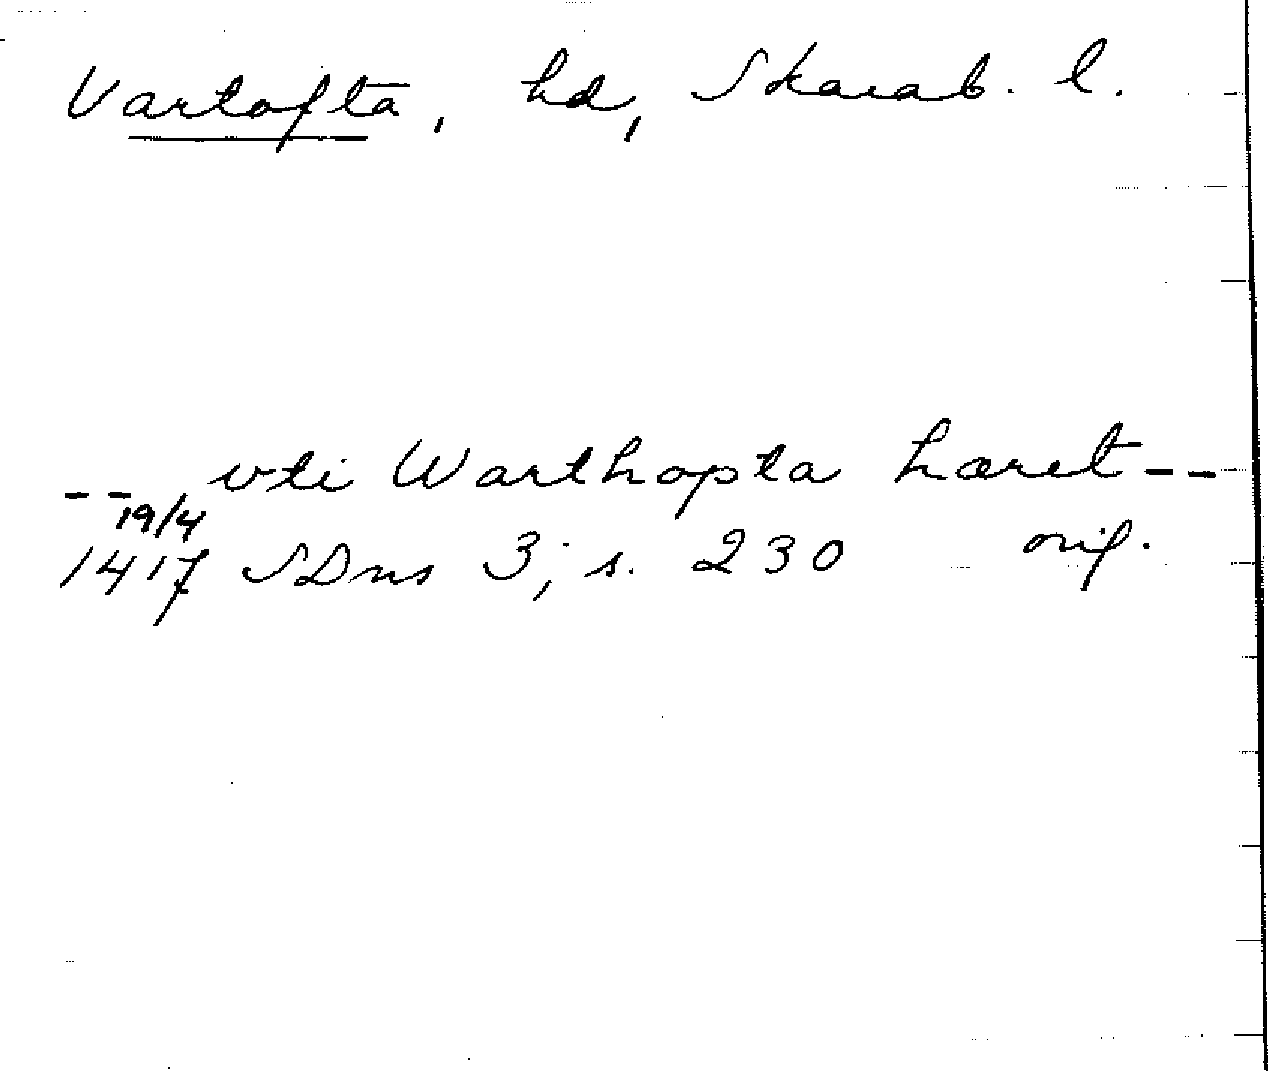 Vartofta, hd, Skarab. l.
-- vti Warthopta hæret --
19/4
1417 SDns 3, s. 230 orig.